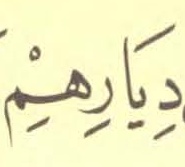 دِيَارِهِمْ